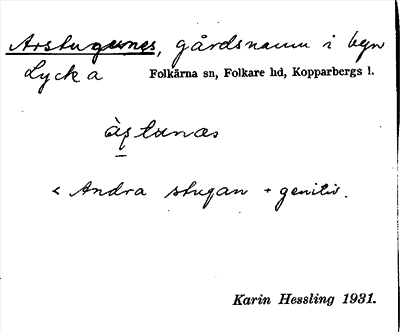 Arstugunes, gårdsnamn i byn
Lycka Folkärna sn, Folkare hd, Kopparbergs l.
àʂtunæs
< Andra stugan + genitiv.
Karin Hessling 1931.